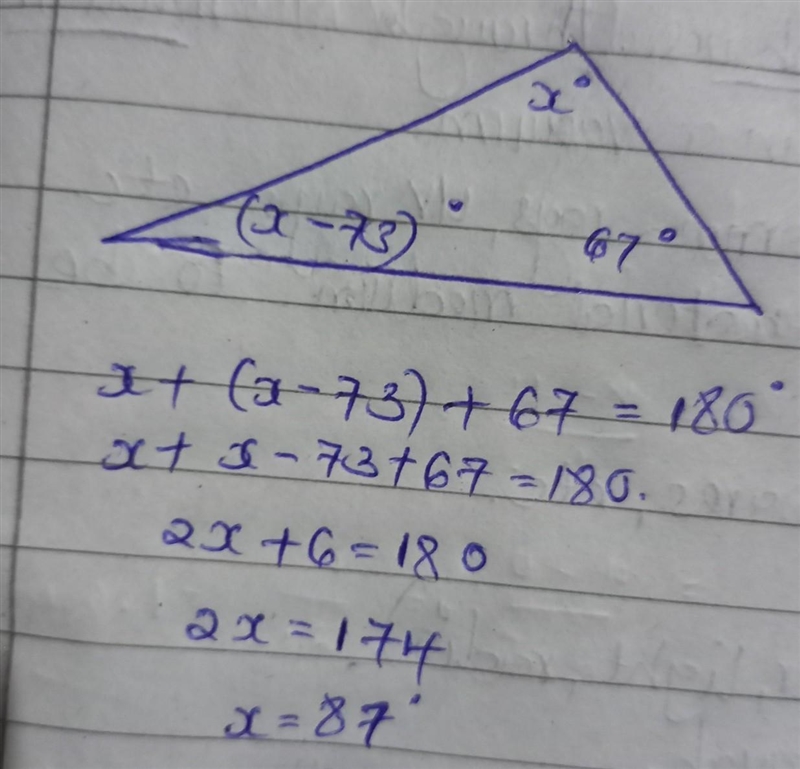 x°
(x - 73)°
67°
x + (x - 73) + 67 = 180°
x + x - 73 + 67 = 180.
2x + 6 = 180
2x = 174
x = 87°